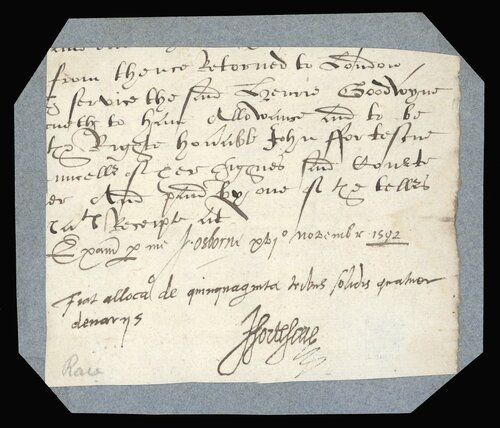 from thence Retourned to London
service the said Henrie Goodwyne
to have Allowance And to be
the Righte Honable John ffortescue
of her highnes said Courte
er And paied by one of the tellers
Receipte at
Exam p me J. Osborne xvjo novembr 1592
fiat alloca de quinquaginta tribus solidis quatuor
denarijs
Jffortescue
Rare